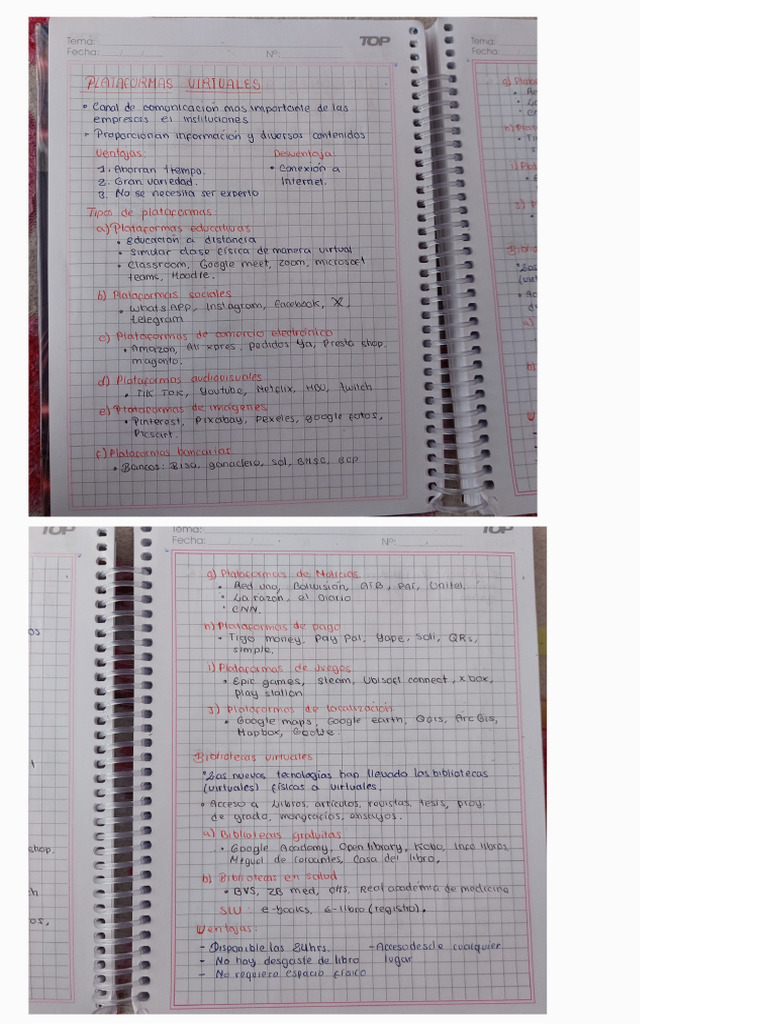 Tema:
TOP
Fecha: / /
Nº:
PLATAFORMAS VIRTUALES
• Canal de comunicación más importante de las
empresas e instituciones
• Proporcionan información y diversos contenidos
Ventajas:
Desventaja:
1. Ahorran tiempo.
• Conexión a
2. Gran variedad.
Internet.
3. No se necesita ser experto
Tipos de plataformas
a) Plataformas educativas
• Educación a distancia
• Simular clase física de manera virtual
• Classroom, Google meet, Zoom, microsoft
teams, Moodle.
b) Plataformas sociales
• Whats App, Instagram, Facebook, X,
telegram
c) Plataformas de comercio electrónico
• Amazon, Ali xpres. Pedidos Ya, Presta shop.
magento.
d) Plataformas audiovisuales
• TIK TOK, Youtube, Netflix, HBO, twitch
e) Plataformas de imágenes
• Pinterest, Pixabay, Pexeles, google fotos,
Picsart.
f) Plataformas bancarias
• Bancos: Bisa, ganadero, sol, BMSC, BCP
Tema:
Fecha: /
TOP
Tema:
TOP
Fecha: / /
Nº:
g) Plataformas de Noticias
• Red uno, Bolivisión, ATB, PAT, Unitel.
• La razón, el Diario
• CNN.
h) Plataformas de pago
• Tigo money, Pay Pal, Yape, Soli, QRs,
simple.
i) Plataformas de Juegos
• Epic games, Steam, Ubisoft connect, x box,
Play station
J) Plataformas de localización
• Google maps, Google earth, QGis, ArcGis,
Mapbox,
Bibliotecas virtuales
"Las nuevas tecnologías han llevado las bibliotecas
(virtuales) físicas a virtuales.
• Acceso a Libros, artículos, revistas, tesis, proy.
de grado, monografías, ensayos.
a) Bibliotecas gratuitas
• Google Academy, Open library, Kobo, Info libros,
Miguel de Cervantes, Casa del libro,
b) Bibliotecas en salud
• BVS, ZB med, OMS, Real académia de medicina
SIU: e-books, e-libro (registro).
Ventajas:
- Disponible las 24hrs.
- Acceso desde cualquier
- No hay desgaste de libro
lugar
- No requiero espacio físico